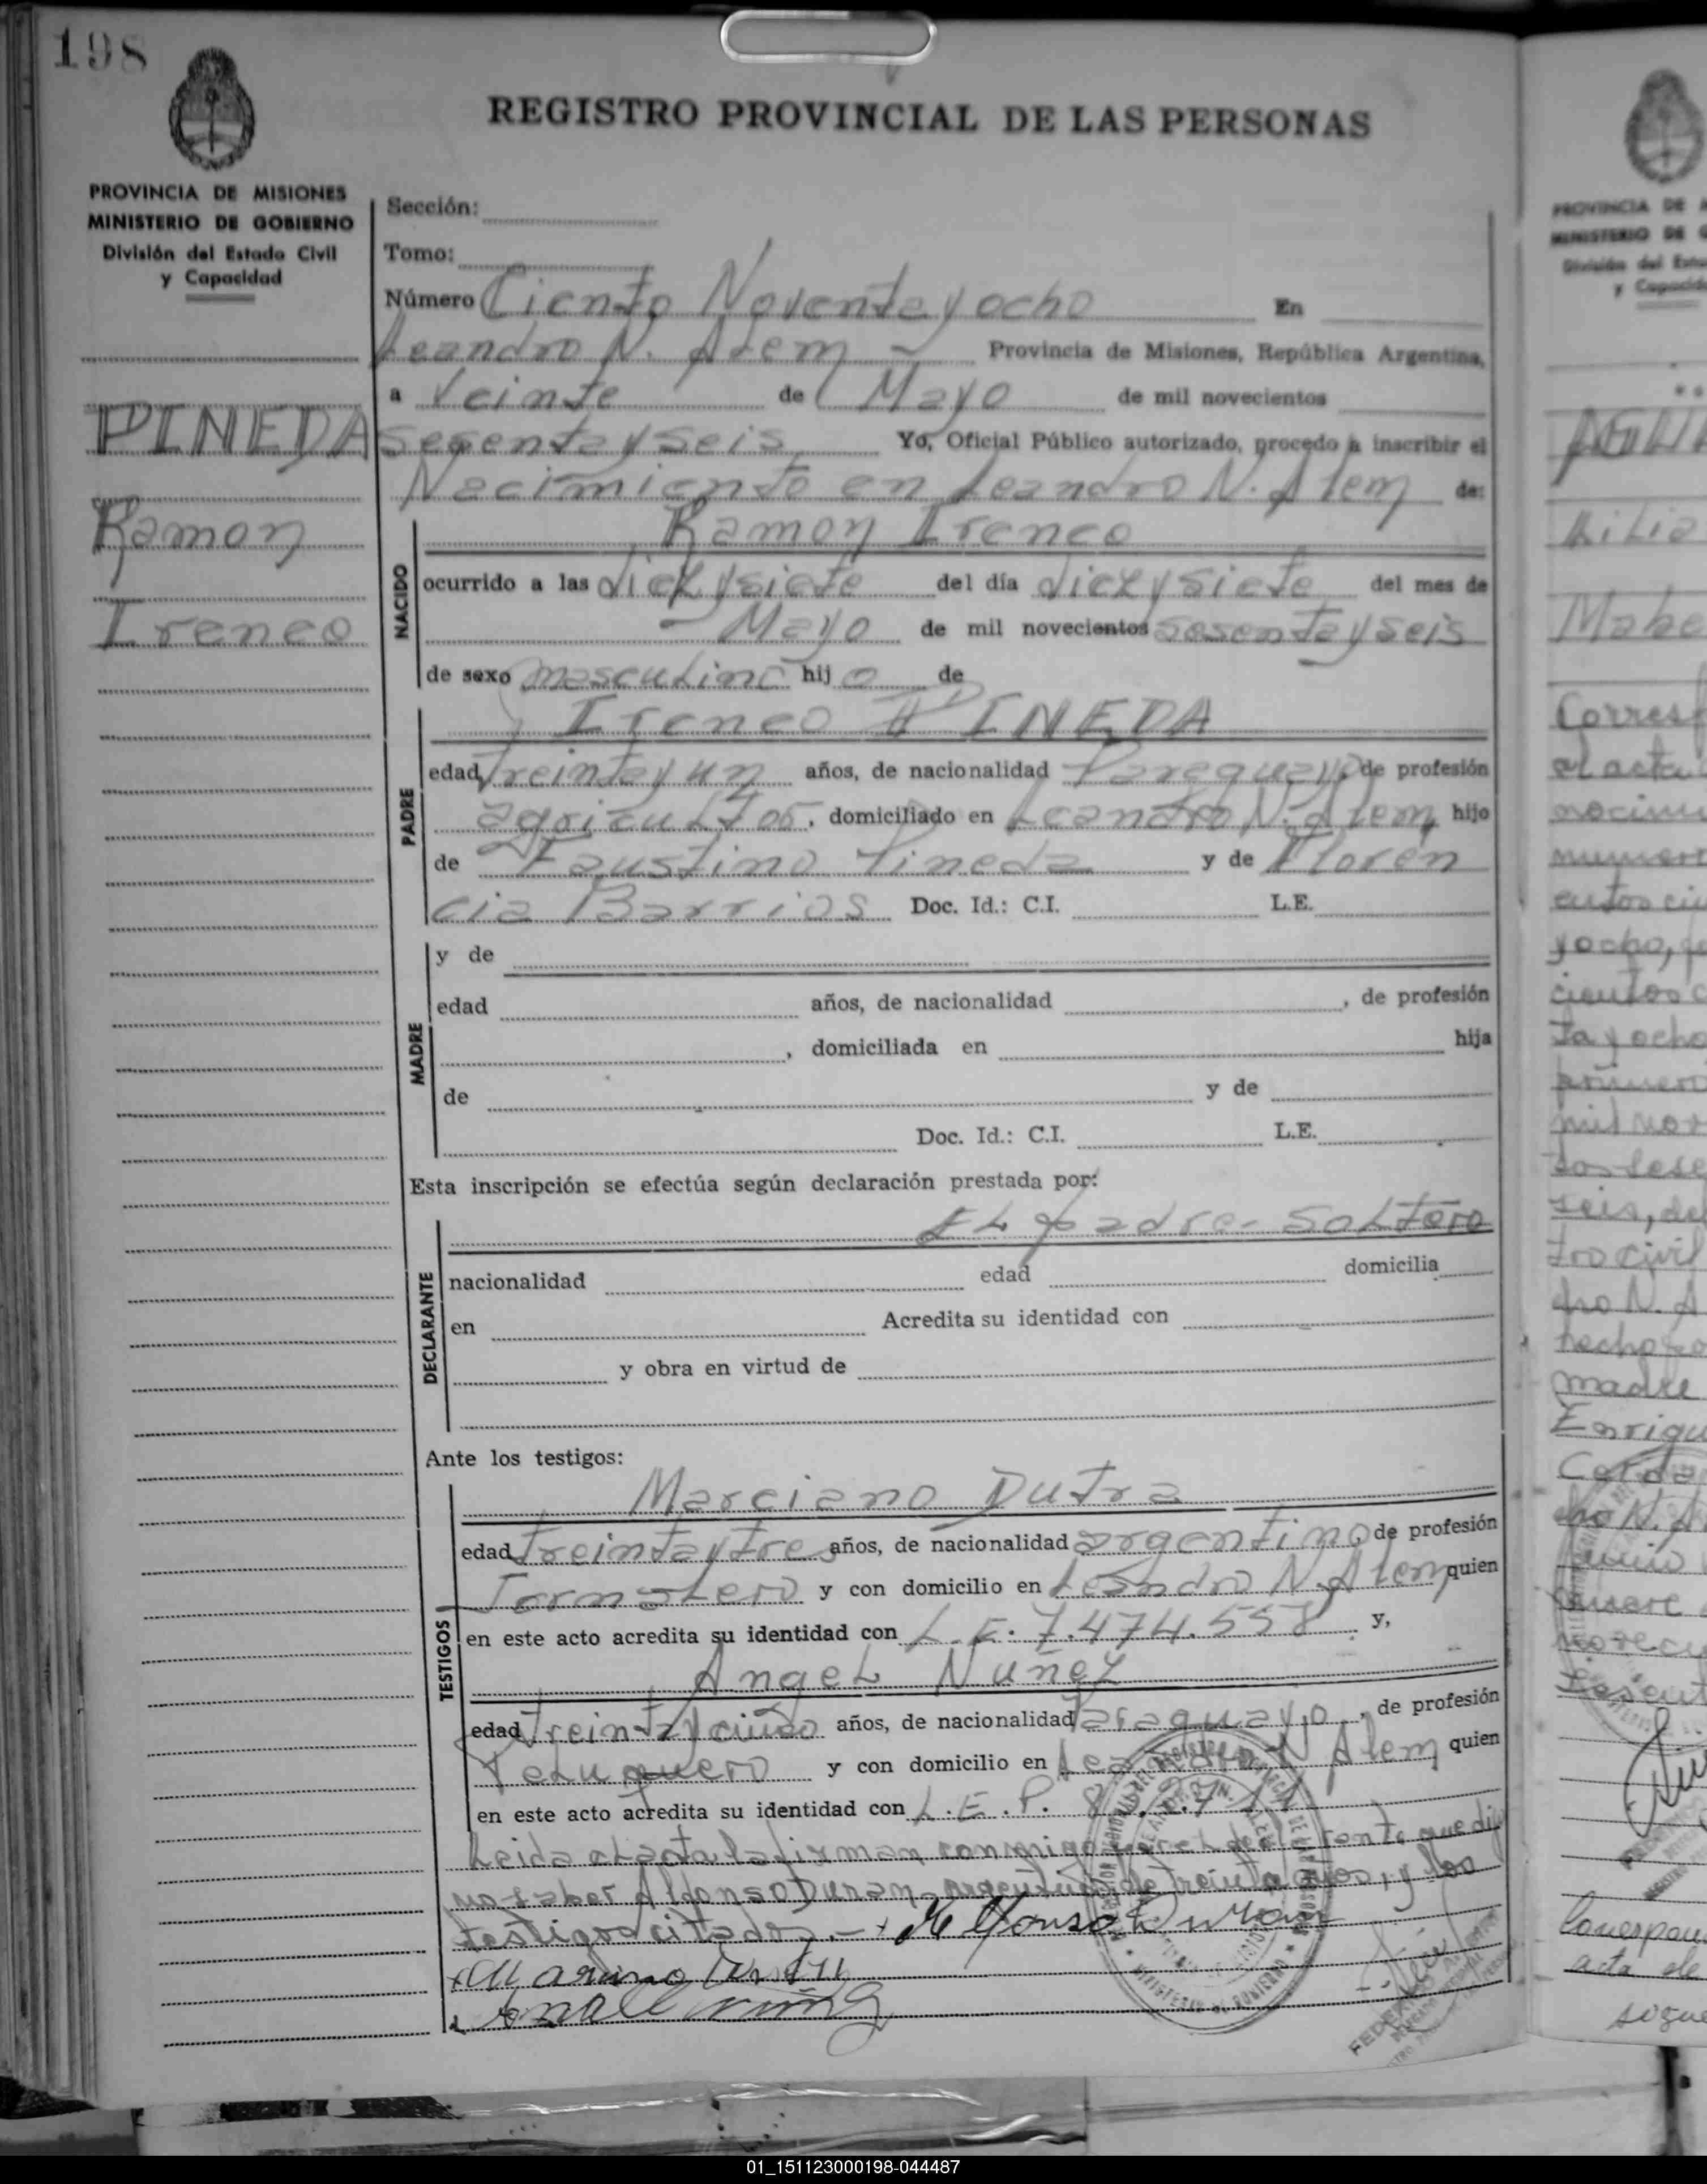 198
REGISTRO PROVINCIAL DE LAS PERSONAS
PROVINCIA DE MISIONES
MINISTERIO DE GOBIERNO
División del Estado Civil
y Capacidad
Sección:
Tomo:
Número Ciento Noventa y ocho En
Leandro N. Alem — Provincia de Misiones, República Argentina,
a Veinte de Mayo de mil novecientos
PINEDA
Ramon
Ireneo
sesenta y seis Yo, Oficial Público autorizado, procedo a inscribir el
Nacimiento en Leandro N. Alem de:
NACIDO
Ramon Ireneo
ocurrido a las diez y siete del día diez y siete del mes de
Mayo de mil novecientos sesenta y seis
de sexo masculino hijo de
PADRE
Ireneo PINEDA
edad treinta y un años, de nacionalidad Paraguayo, de profesión
agricultor, domiciliado en Leandro N. Alem, hijo
de Faustino Pineda y de Floren
cia Barrios Doc. Id.: C.I. L.E.
MADRE
y de
edad años, de nacionalidad , de profesión
, domiciliada en hija
de y de
Doc. Id.: C.I. L.E.
Esta inscripción se efectúa según declaración prestada por:
DECLARANTE
EL padre - soltero
nacionalidad edad domicilia
en Acredita su identidad con
y obra en virtud de
Ante los testigos:
TESTIGOS
Marciano Dutra
edad treinta y tres años, de nacionalidad argentino de profesión
Jornalero y con domicilio en Leandro N. Alem quien
en este acto acredita su identidad con L.E. 7.474.558 y,
Angel Nuñez
edad treinta y cinco años, de nacionalidad Paraguayo, de profesión
Peluquero y con domicilio en Leandro N Alem quien
en este acto acredita su identidad con L.E.P.
Leida el acta la firman conmigo por el declarante que dijo
no saber Alfonso Duran, argentino de treinta años, y los
testigos citados.- x Alfonso Duran
x Marciano Dutra
x Angel Nuñez
PROVINCIA DE
MINISTERIO DE
División del Esta
y Capacida
Lilia
Mabe
Corresp
al acta
yocho,
ta y ocho
seis, de
tro civil
dro N. A
hecho
madre
Enriqu
dro N. A
acta de
01_151123000198-044487